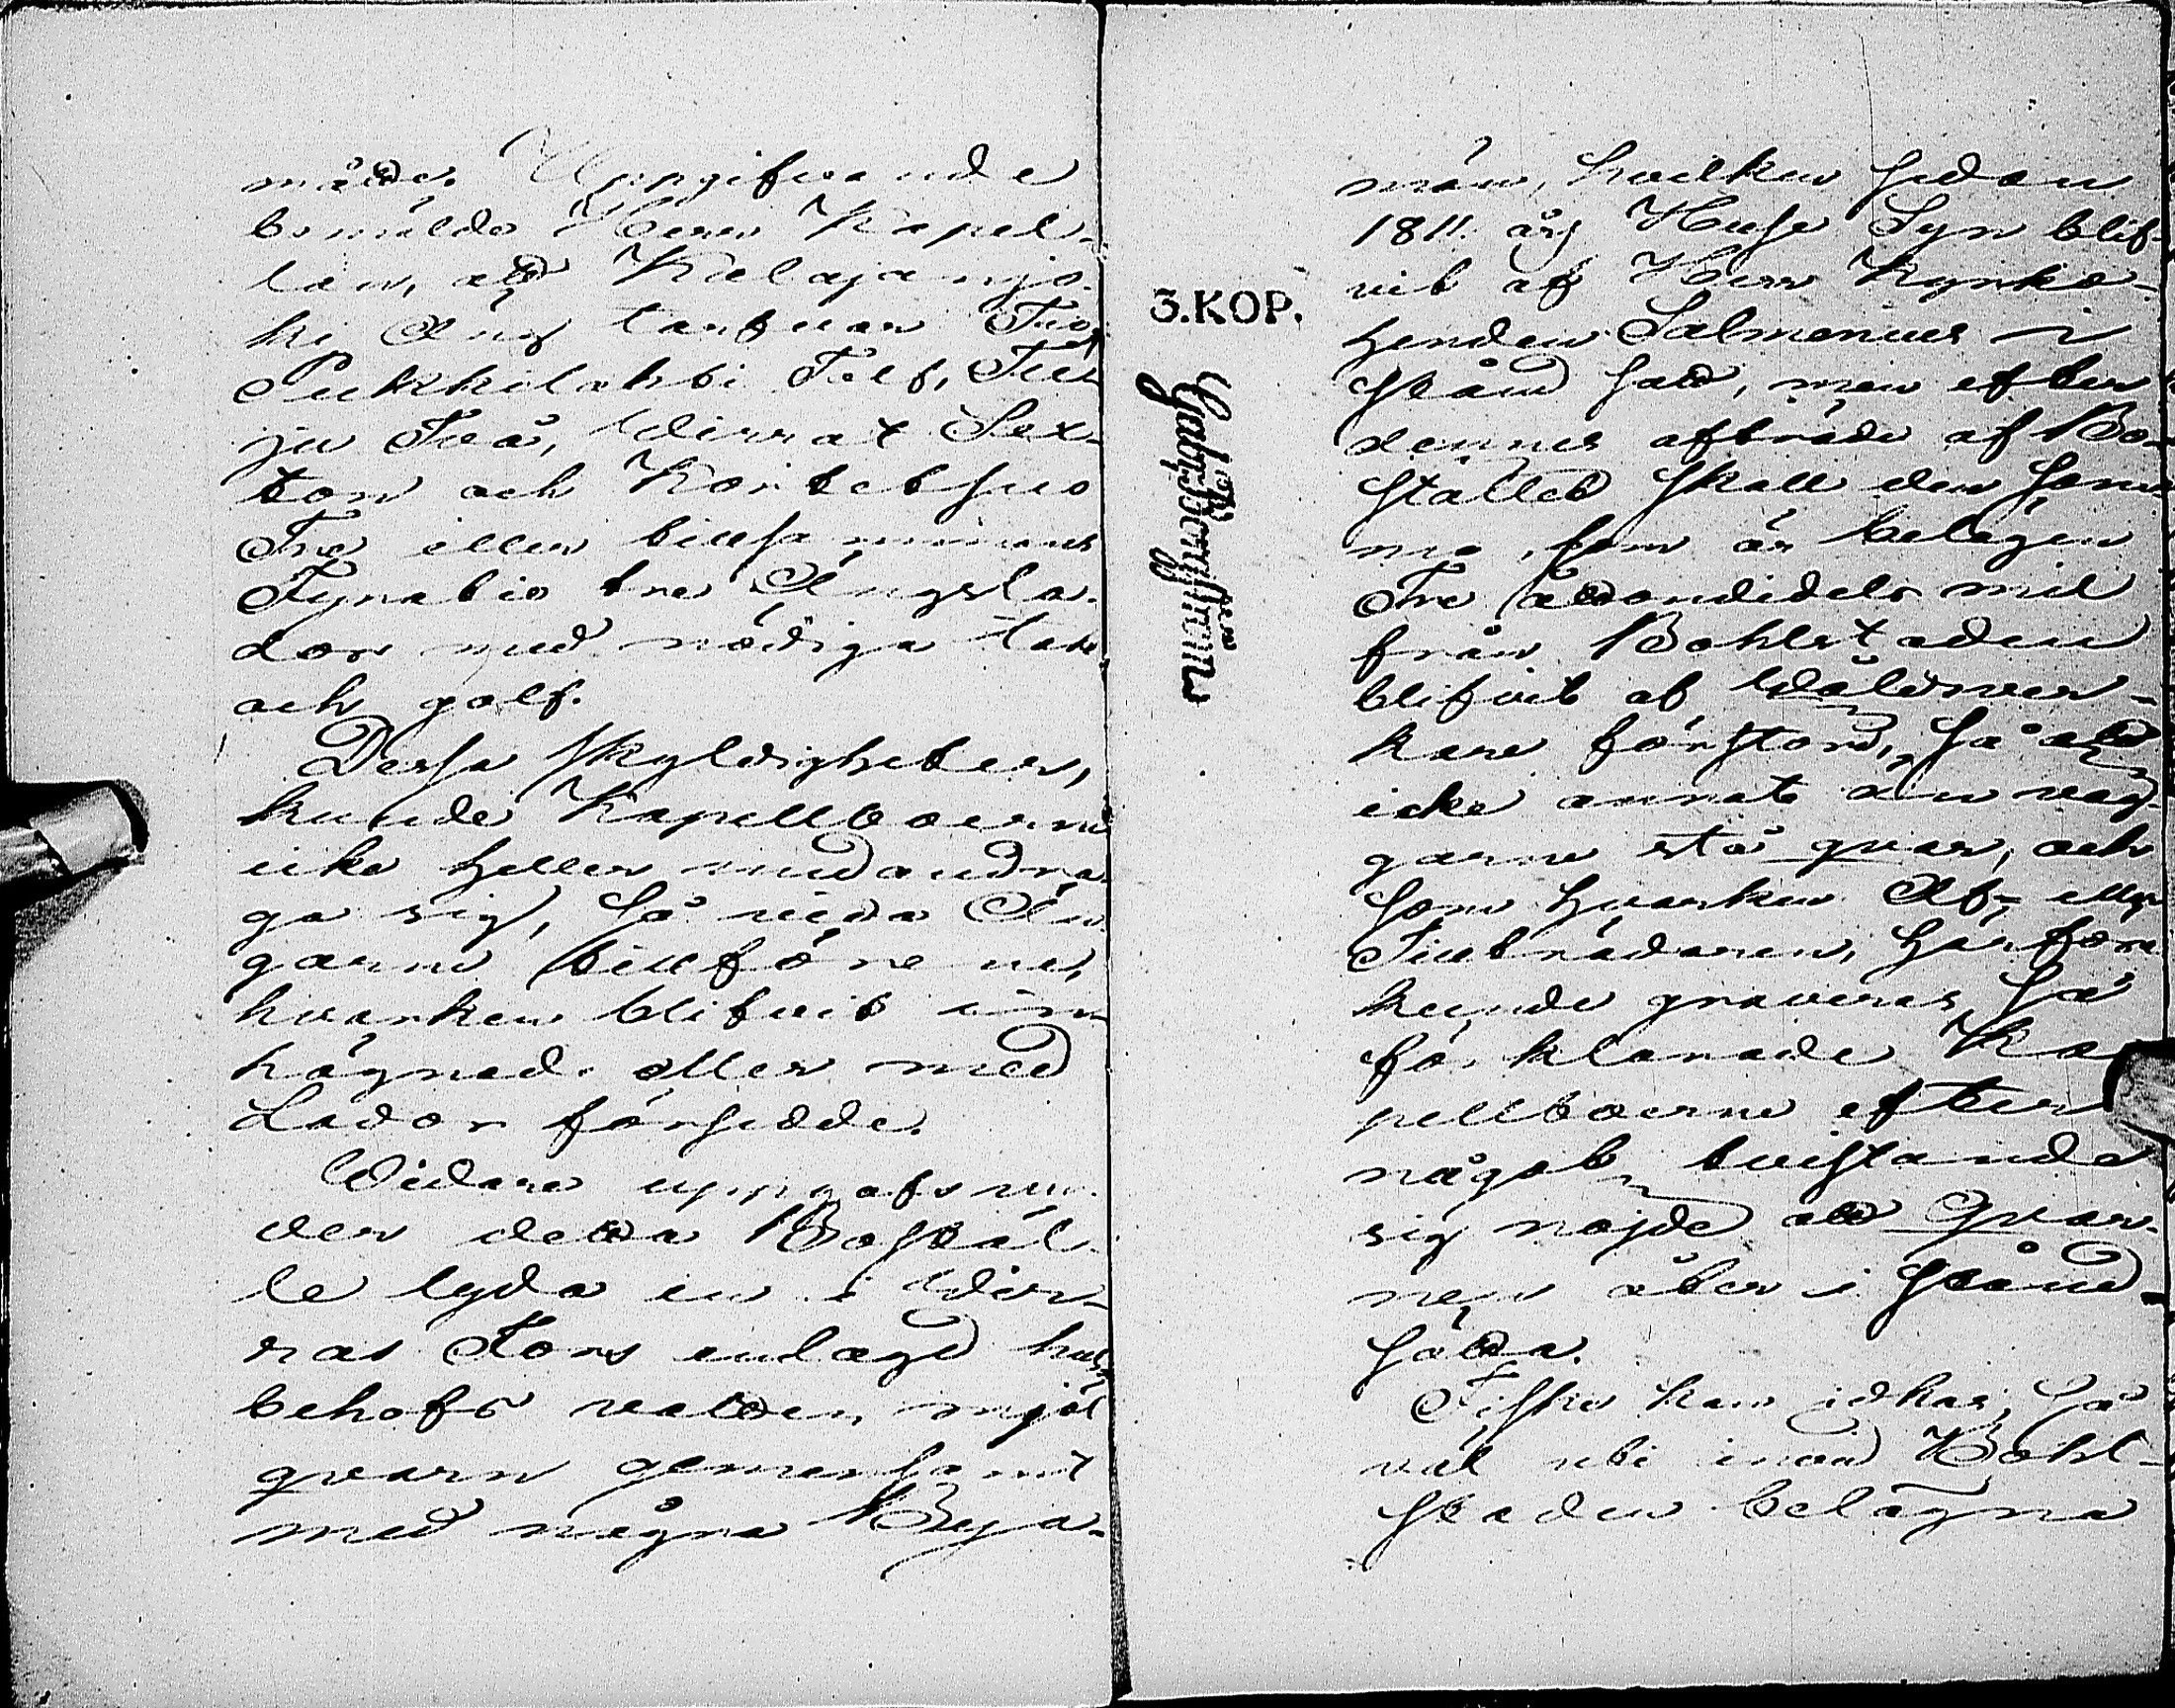 målde. Uppgifwande
bemälde Herr Kapel-
lan, att Kalajanjo-
ki Äng tarfwar Tio,
Pukkilahti Tolf, Ter-
ju Två, Wirrat Sex-
ton och Kortetsuo
Tre eller tillsammans
Fyratio tre Ängsla-
dor med nödiga tak
och golf.
Dessa skyldigheter,
kunde Kapellboerne
icke heller undandra-
ga sig, så wida Än-
garne tillförene,
hvarken blifvit in-
hägnade eller med
Lador försedde.
Widare uppgafs un-
der detta Boställ-
le lyda en i Wir-
ras Fors anlagd hus-
behofs vatten mjöl
qvarn gemensamt
med några Bya-
män, hvilken sedan
1811. års Huse Syn blif-
vit af Herr Kyrko-
herden Salmenius i
stånd satt, men efter
dennes afträde af Bo-
stället skall den sam-
ma, som är belägen
Tre åttondedels mil
från Bohlstaden
blifvit af Wåldsver-
kare förstörd, så att
icke annat än väg-
garne stå qvar, och
som hvarken Af- eller
Tillträdaren, härföre
kunde graveras, så
förklarade Ka-
pellboerne efter
något tvistande
sig nöjde att Qvar-
nen åter i stånd-
sätta.
Fiske kan idkas, så
väl uti invid Bohl-
staden belägna
3.KOP.